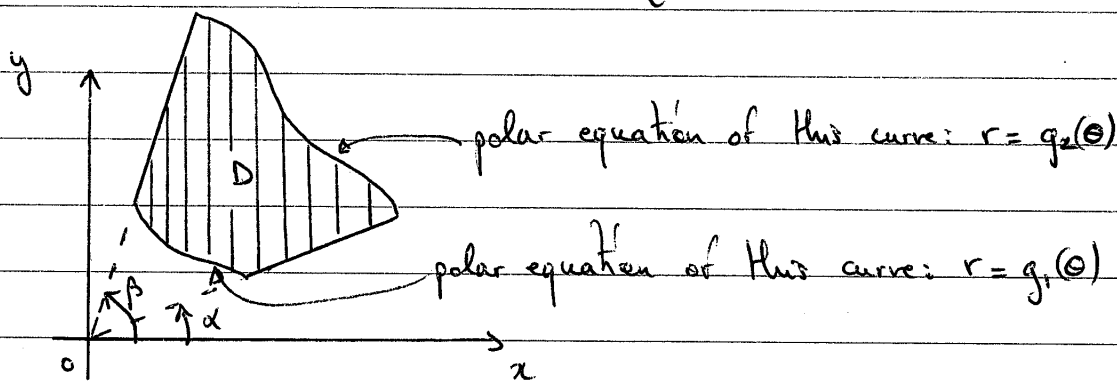 y
polar equation of this curve: r = g₂(θ)
D
polar equation of this curve: r = g₁(θ)
β
α
0
x